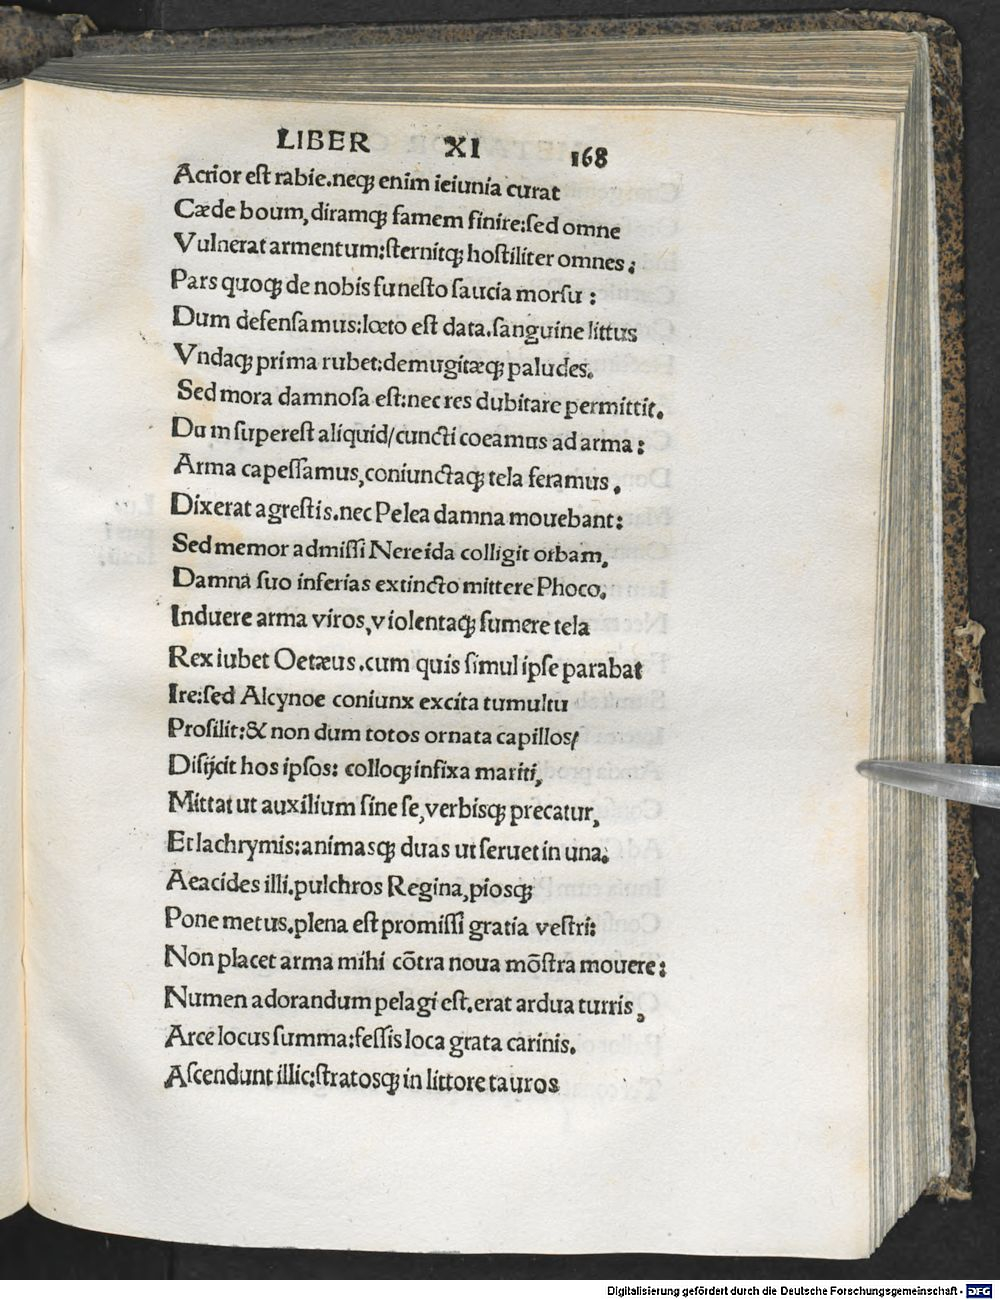 LIBER XI 168
Acrior est rabie.neqꝫ enim ieiunia curat
Cæde boum,diramqꝫ famem finire:sed omne
Vulnerat armentum:sternitqꝫ hostiliter omnes:
Pars quoqꝫ de nobis funesto saucia morsu:
Dum defensamus:lœto est data.sanguine littus
Vndaqꝫ prima rubet:demugitæqꝫ paludes.
Sed mora damnosa est:nec res dubitare permittit.
Dum superest aliquid/cuncti coeamus ad arma:
Arma capessamus,coniunctaqꝫ tela feramus.
Dixerat agrestis.nec Pelea damna mouebant:
Sed memor admissi Nereida colligit orbam,
Damna suo inferias extincto mittere Phoco.
Induere arma viros,violentaqꝫ sumere tela
Rex iubet Oetæus.cum quis simul ipse parabat
Ire:sed Alcynoe coniunx excita tumultu
Prosilit:& non dum totos ornata capillos/
Disijcit hos ipsos: colloqꝫ infixa mariti,
Mittat ut auxilium sine se,verbisqꝫ precatur,
Et lachrymis:animasqꝫ duas ut seruet in una.
Aeacides illi.pulchros Regina,piosqꝫ
Pone metus.plena est promissi gratia vestri:
Non placet arma mihi cõtra noua mõstra mouere:
Numen adorandum pelagi est.erat ardua turris,
Arce locus summa:fessis loca grata carinis.
Ascendunt illic:stratosqꝫ in littore tauros
Digitalisierung gefördert durch die Deutsche Forschungsgemeinschaft - DFG